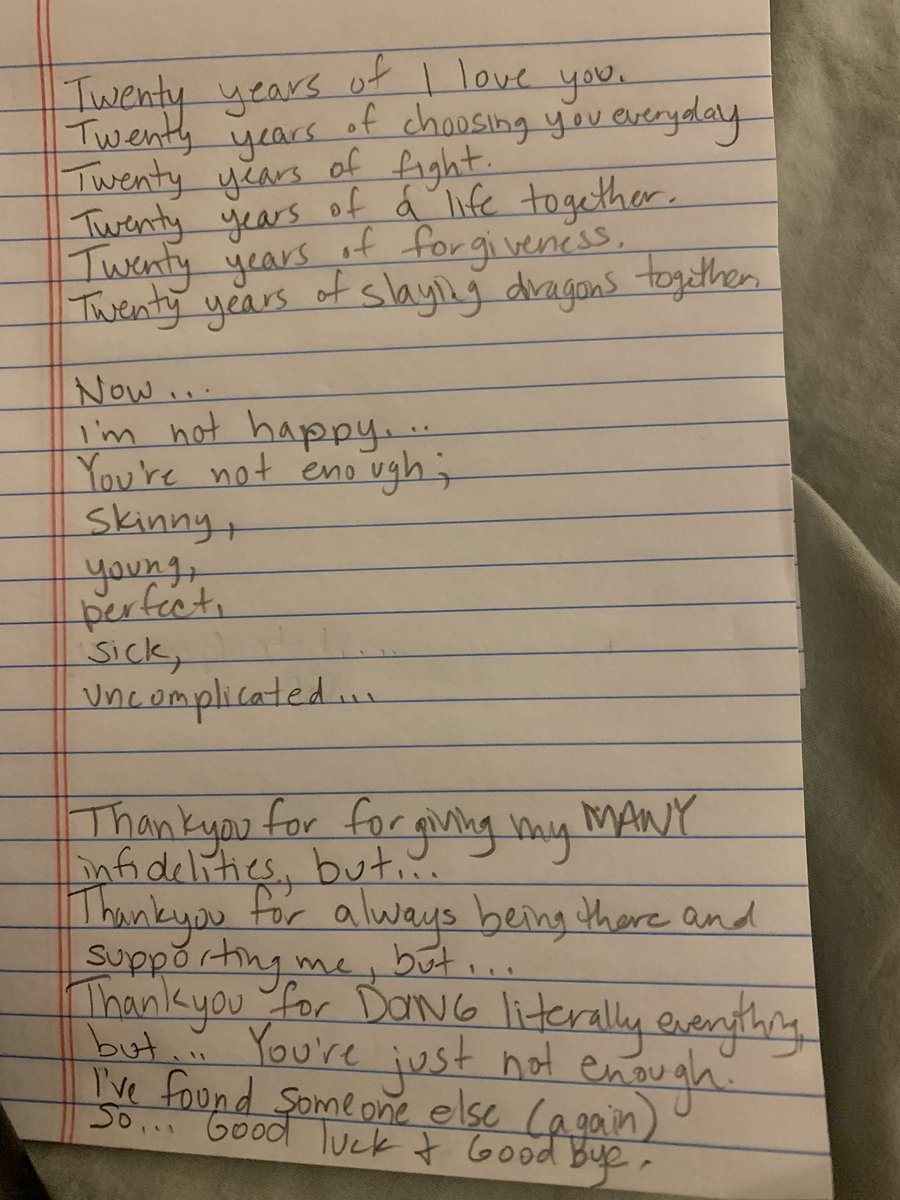 Twenty years of I love you.
Twenty years of choosing you everyday
Twenty years of fight.
Twenty years of a life together.
Twenty years of forgiveness.
Twenty years of slaying dragons together.
Now...
I'm not happy...
You're not enough;
skinny,
young,
perfect,
sick,
uncomplicated...
Thankyou for forgiving my MANY
infidelities, but...
Thankyou for always being there and
supporting me, but...
Thankyou for DOING literally everything,
but... You're just not enough.
I've found someone else (again)
So... Good luck + Good bye.